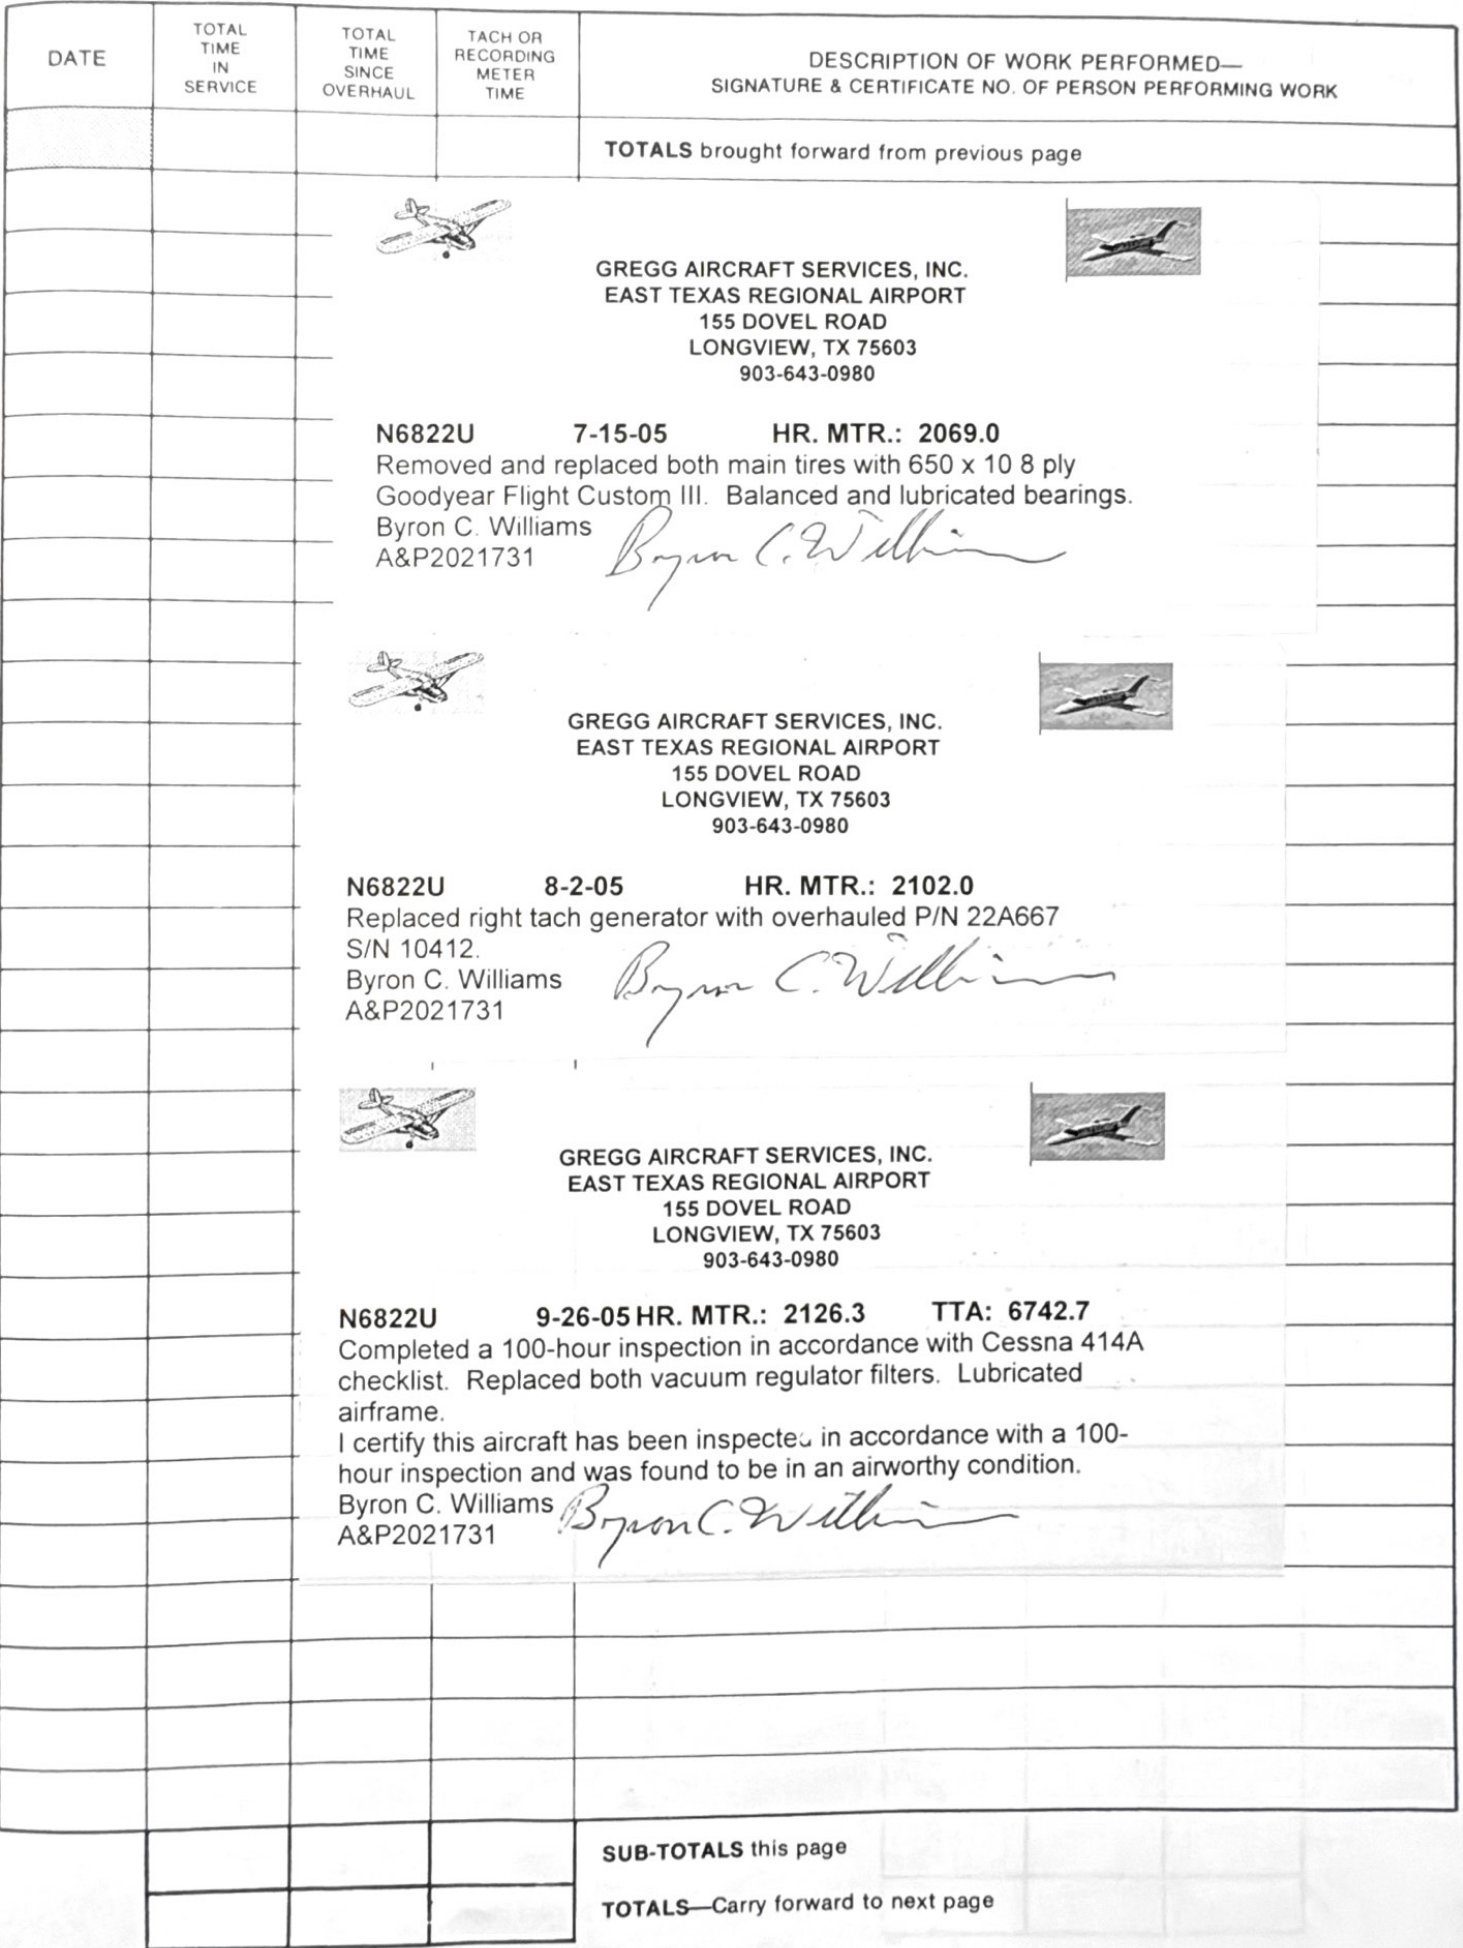 DATE
TOTAL
TIME
IN
SERVICE
TOTAL
TIME
SINCE
OVERHAUL
TACH OR
RECORDING
METER
TIME
DESCRIPTION OF WORK PERFORMED—
SIGNATURE & CERTIFICATE NO. OF PERSON PERFORMING WORK
TOTALS brought forward from previous page
GREGG AIRCRAFT SERVICES, INC.
EAST TEXAS REGIONAL AIRPORT
155 DOVEL ROAD
LONGVIEW, TX 75603
903-643-0980
N6822U 7-15-05 HR. MTR.: 2069.0
Removed and replaced both main tires with 650 x 10 8 ply
Goodyear Flight Custom III. Balanced and lubricated bearings.
Byron C. Williams
A&P2021731 Byron C. Williams
GREGG AIRCRAFT SERVICES, INC.
EAST TEXAS REGIONAL AIRPORT
155 DOVEL ROAD
LONGVIEW, TX 75603
903-643-0980
N6822U 8-2-05 HR. MTR.: 2102.0
Replaced right tach generator with overhauled P/N 22A667
S/N 10412.
Byron C. Williams Byron C. Williams
A&P2021731
GREGG AIRCRAFT SERVICES, INC.
EAST TEXAS REGIONAL AIRPORT
155 DOVEL ROAD
LONGVIEW, TX 75603
903-643-0980
N6822U 9-26-05 HR. MTR.: 2126.3 TTA: 6742.7
Completed a 100-hour inspection in accordance with Cessna 414A
checklist. Replaced both vacuum regulator filters. Lubricated
airframe.
I certify this aircraft has been inspected in accordance with a 100-
hour inspection and was found to be in an airworthy condition.
Byron C. Williams Byron C. Williams
A&P2021731
SUB-TOTALS this page
TOTALS—Carry forward to next page